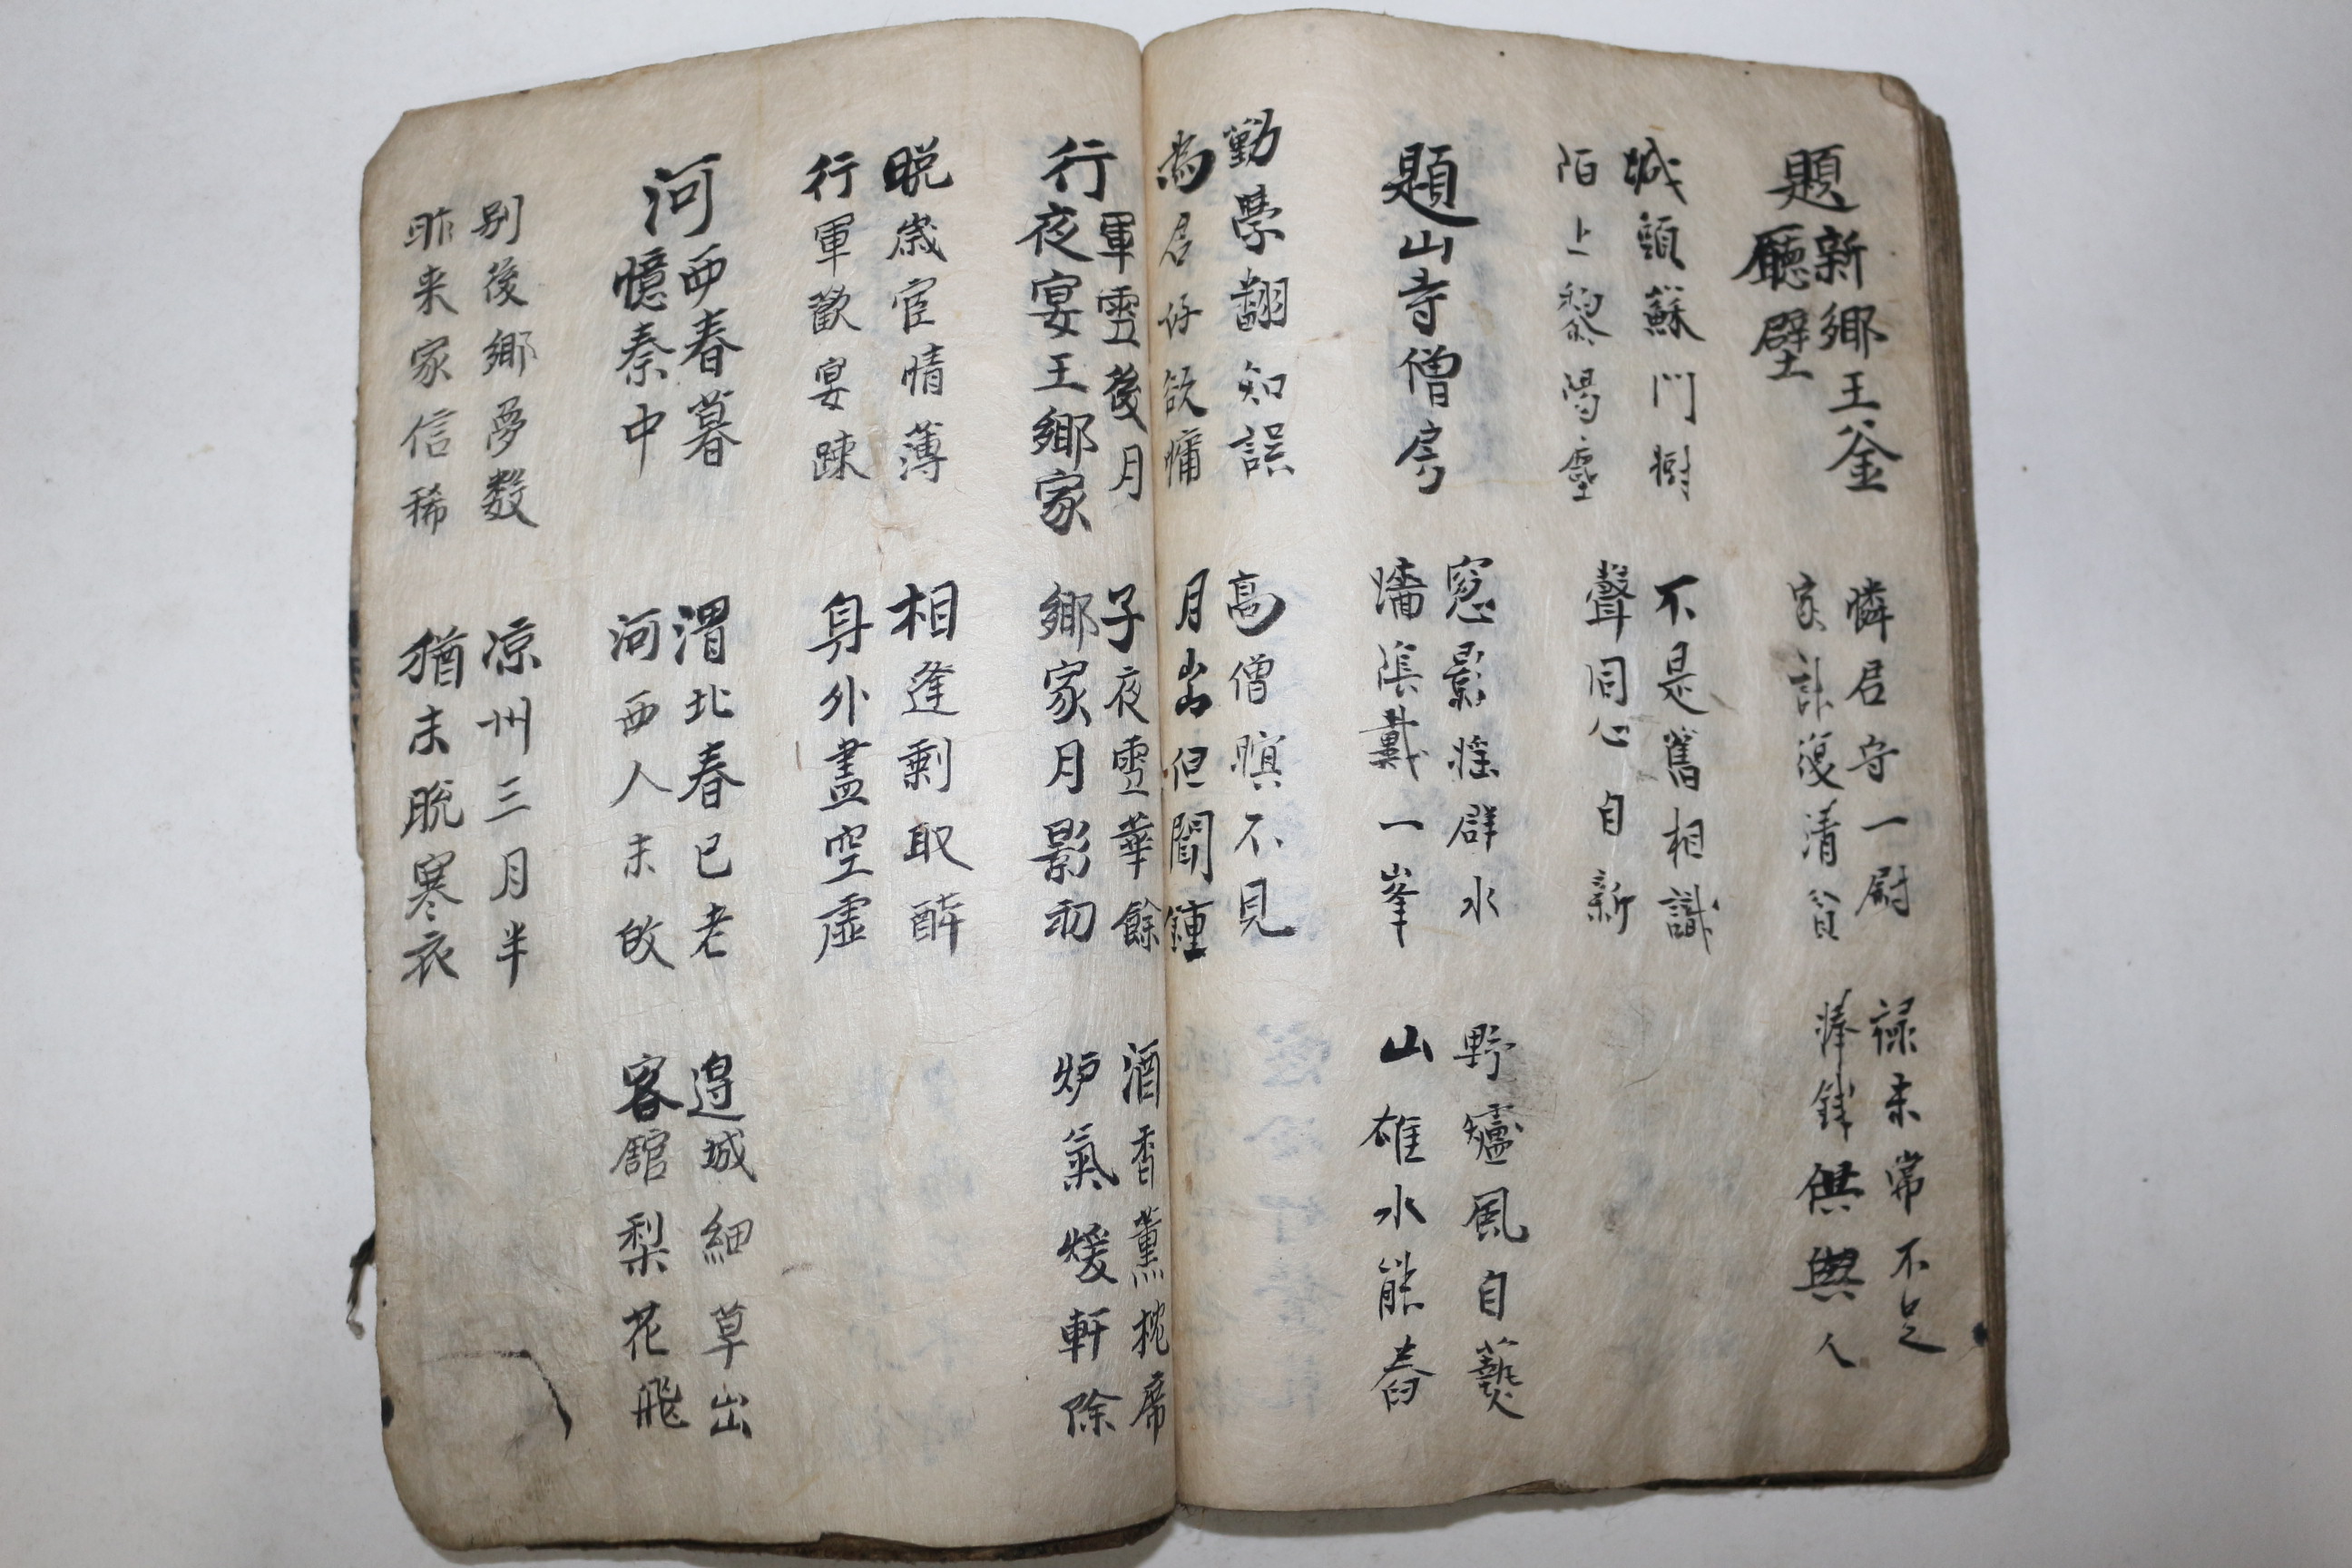 題新鄉王釜
廳壁
憐君守一尉
家計復清貧
祿未常不足
俸錢供與人
城頭蘇門樹
陌上黎陽塵
不是舊相識
聲同心自新
題山寺僧房
窓影搖群水
墻陰戴一峯
野爐風自爇
山碓水能舂
勤學翻知誤
為欲慵
高僧暝不見
月出但聞鍾
行軍雪後月
夜宴王鄉家
子夜雪華餘
鄉家月影初
酒香薰枕席
炉氣煖軒除
晚歲宦情薄
行軍歡宴踈
相逢剩取醉
身外盡空虛
河西春暮
憶秦中
渭北春已老
河西人未皈
邊城細草出
客舘梨花飛
別後鄉夢数
昨来家信稀
凉州三月半
猶未脫寒衣